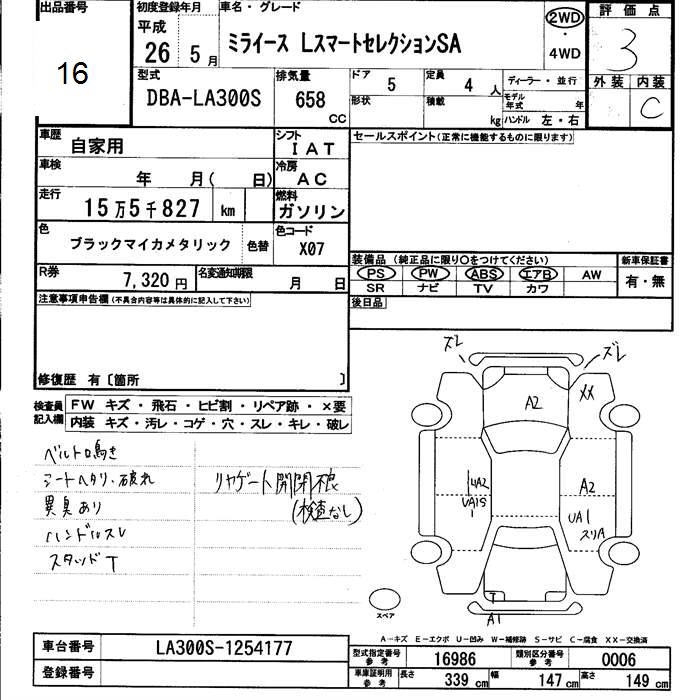 出品番号
16
初度登録年月
平成
26 5月
車名・グレード
ミライース LスマートセレクションSA
2WD
・
4WD
評価点
3
外装 内装
C
型式
DBA-LA300S
排気量
658
CC
ドア
5
定員
4 人
形状
積載
kg
ディーラー・並行
モデル
年式 年
ハンドル 左・右
車歴
自家用
シフト
IAT
車検
年 月( 日)
冷房
AC
走行
15万5千827 km
燃料
ガソリン
色
ブラックマイカメタリック
色替
色コード
X07
R券
7,320円
名変通知期限
月 日
セールスポイント(正常に機能するものに限ります)
装備品(純正品に限り〇をつけてください)
PS PW ABS エアB AW
SR ナビ TV カワ
新車保証書
有・無
後日品
注意事項申告欄(不具合内容等は具体的に記入して下さい)
修復歴 有〔箇所 〕
検査員
記入欄
FW キズ・飛石・ヒビ割・リペア跡・×要
内装 キズ・汚レ・コゲ・穴・スレ・キレ・破レ
ベルト鳴き
シートヘタリ・破れ
異臭あり
ハンドルスレ
スタッドT
リヤゲート開閉不良
(検査なし)
ズレ
ズレ
A2
XX
A2
UA1S
A2
UA1
スリA
T
A1
スペア
A-キズ E-エクボ U-凹み W-補修跡 S-サビ C-腐食 XX-交換済
車台番号
LA300S-1254177
登録番号
型式指定番号
参考
16986
類別区分番号
参考
0006
車庫証明用
参考
長さ
339 cm
幅
147 cm
高さ
149 cm